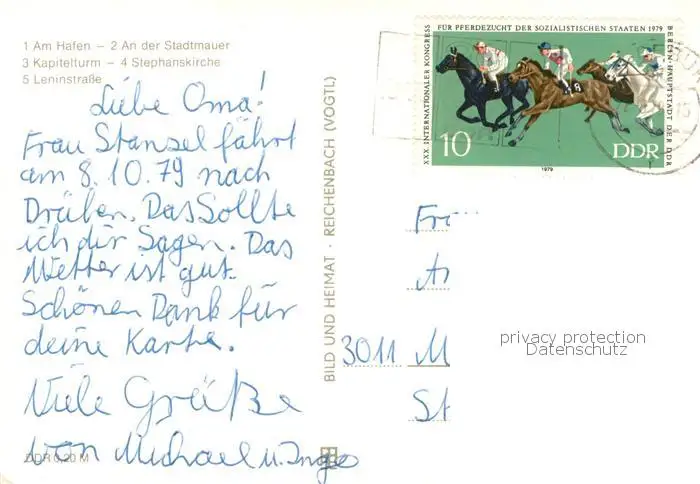 1 Am Hafen – 2 An der Stadtmauer
3 Kapitelturm – 4 Stephanskirche
5 Leninstraße
Liebe Oma!
Frau Stansel fährt
am 8.10.79 nach
Drüben. Das Sollte
ich dir Sagen. Das
Wetter ist gut.
Schönen Dank für
deine Karte.
Viele Grüße
von Michael u. Ingo
DDR 0,20 M
BILD UND HEIMAT · REICHENBACH (VOGTL)
XXX. INTERNATIONALER KONGRESS
FÜR PFERDEZUCHT DER SOZIALISTISCHEN STAATEN 1979
BERLIN-HAUPTSTADT DER DDR
8
10
DDR
1979
Fr
3011 M
St
privacy protection
Datenschutz